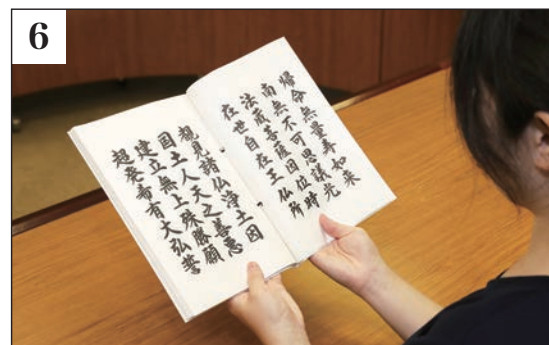 6
帰命無量寿如来
南無不可思議光
法蔵菩薩因位時
在世自在王仏所
覩見諸仏浄土因
国土人天之善悪
建立無上殊勝願
超発希有大弘誓